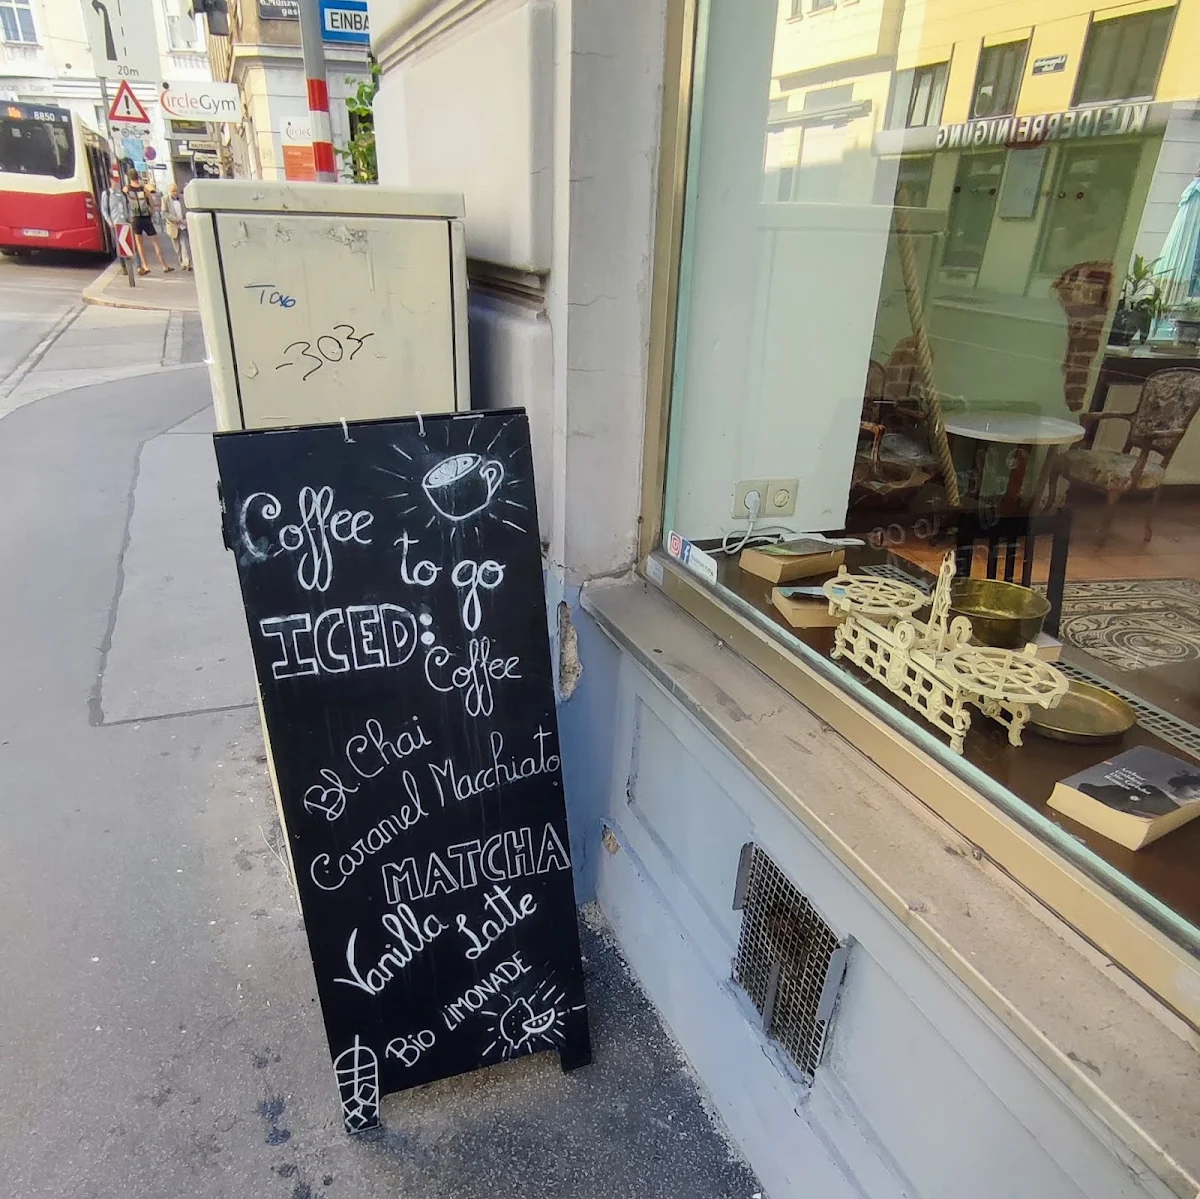 EINBA
20m
CircleGym
8850
KLEIDERREINIGUNG
-303-
Coffee
to go
ICED:
Coffee
Bl Chai
Caramel Macchiato
MATCHA
Vanilla Latte
Bio LIMONADE